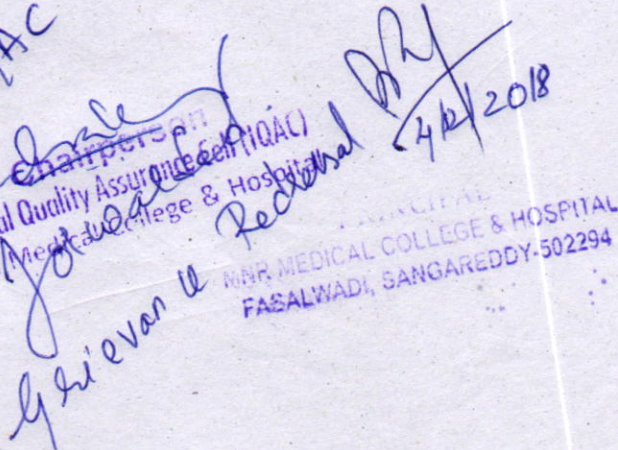 AC
Chairperson
al Quality Assurance Cell (IQAC)
Medical College & Hospital
Grievance Redressal
4/12/2018
PRINCIPAL
MNR MEDICAL COLLEGE & HOSPITAL
FASALWADI, SANGAREDDY-502294